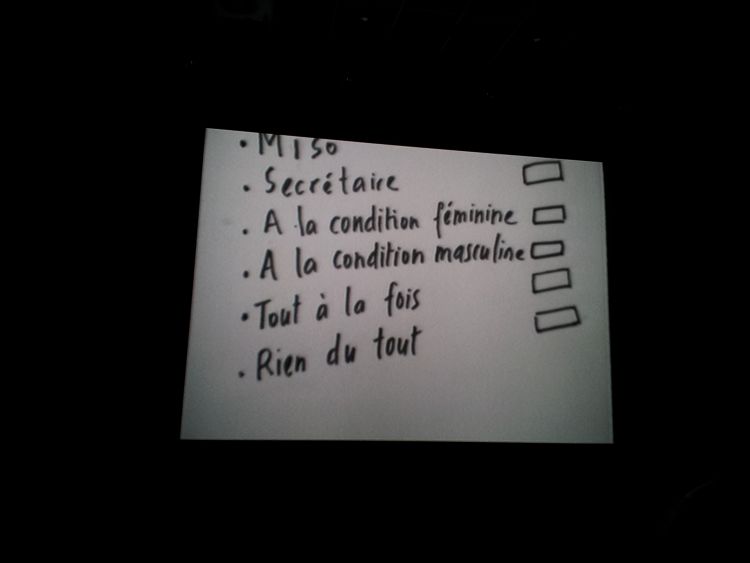 • Miso
• Secrétaire
• A la condition féminine
• A la condition masculine
• Tout à la fois
• Rien du tout